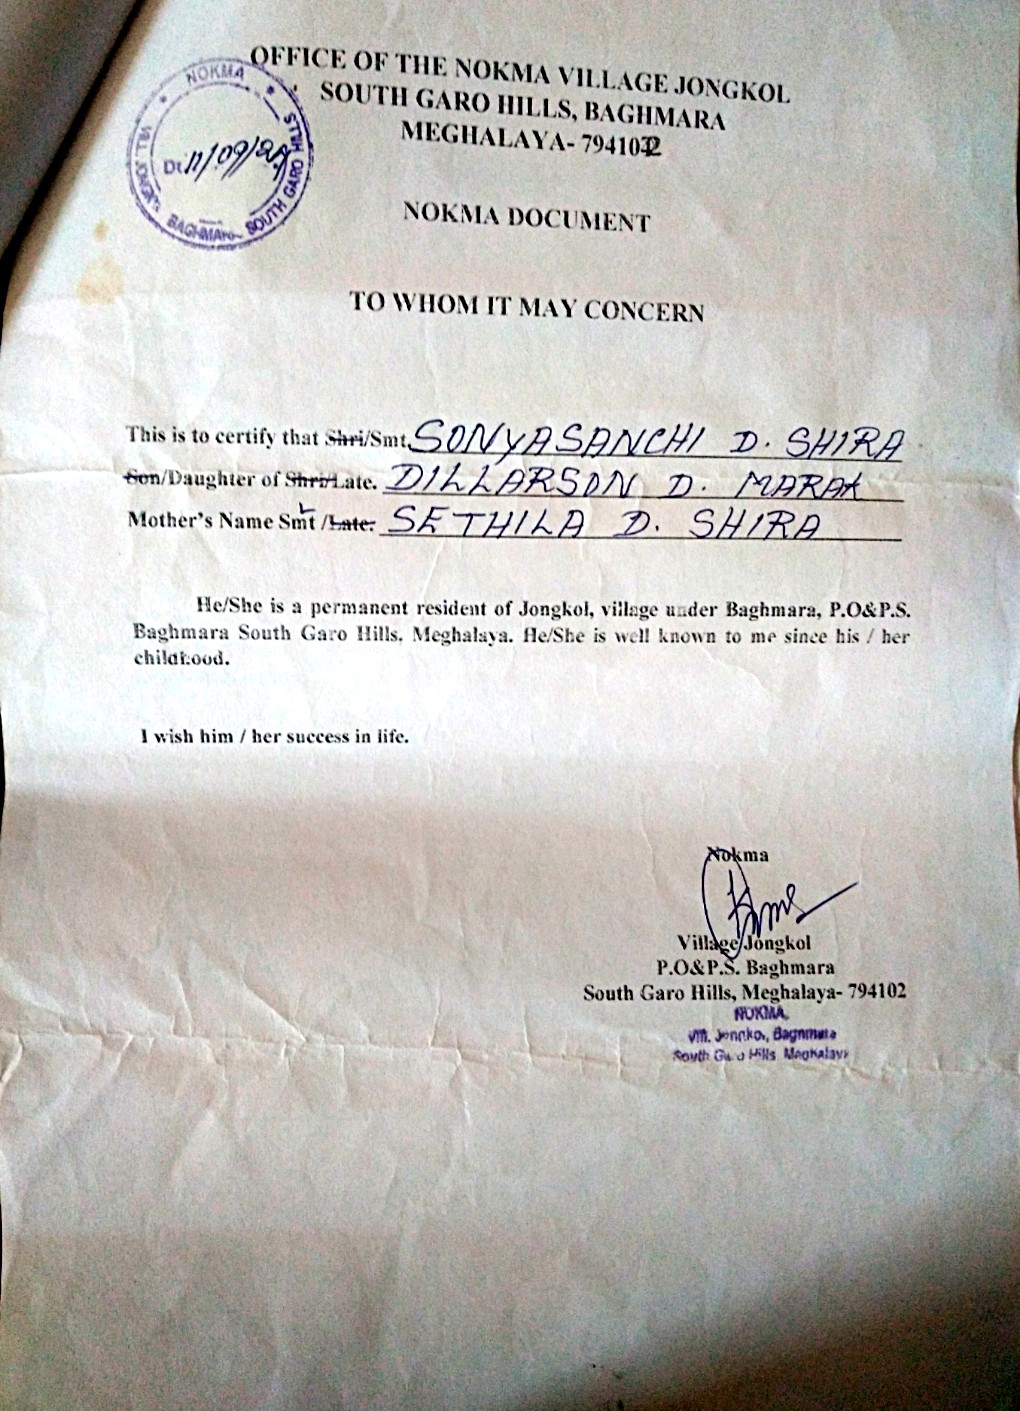 OFFICE OF THE NOKMA VILLAGE JONGKOL
SOUTH GARO HILLS, BAGHMARA
MEGHALAYA- 794102
NOKMA
VILL. JONGKOL
BAGHMARA
SOUTH GARO HILLS
Dt. 11/09/
NOKMA DOCUMENT
TO WHOM IT MAY CONCERN
This is to certify that Shri/Smt. SONYASANCHI D. SHIRA
Son/Daughter of Shri/Late. DILLARSON D. MARAK
Mother's Name Smt /Late. SETHILA D. SHIRA
He/She is a permanent resident of Jongkol, village under Baghmara, P.O&P.S.
Baghmara South Garo Hills. Meghalaya. He/She is well known to me since his / her
childhood.
I wish him / her success in life.
Nokma
Village Jongkol
P.O&P.S. Baghmara
South Garo Hills, Meghalaya- 794102
NOKMA
Vill. Jongkol, Baghmara
South Garo Hills Meghalaya